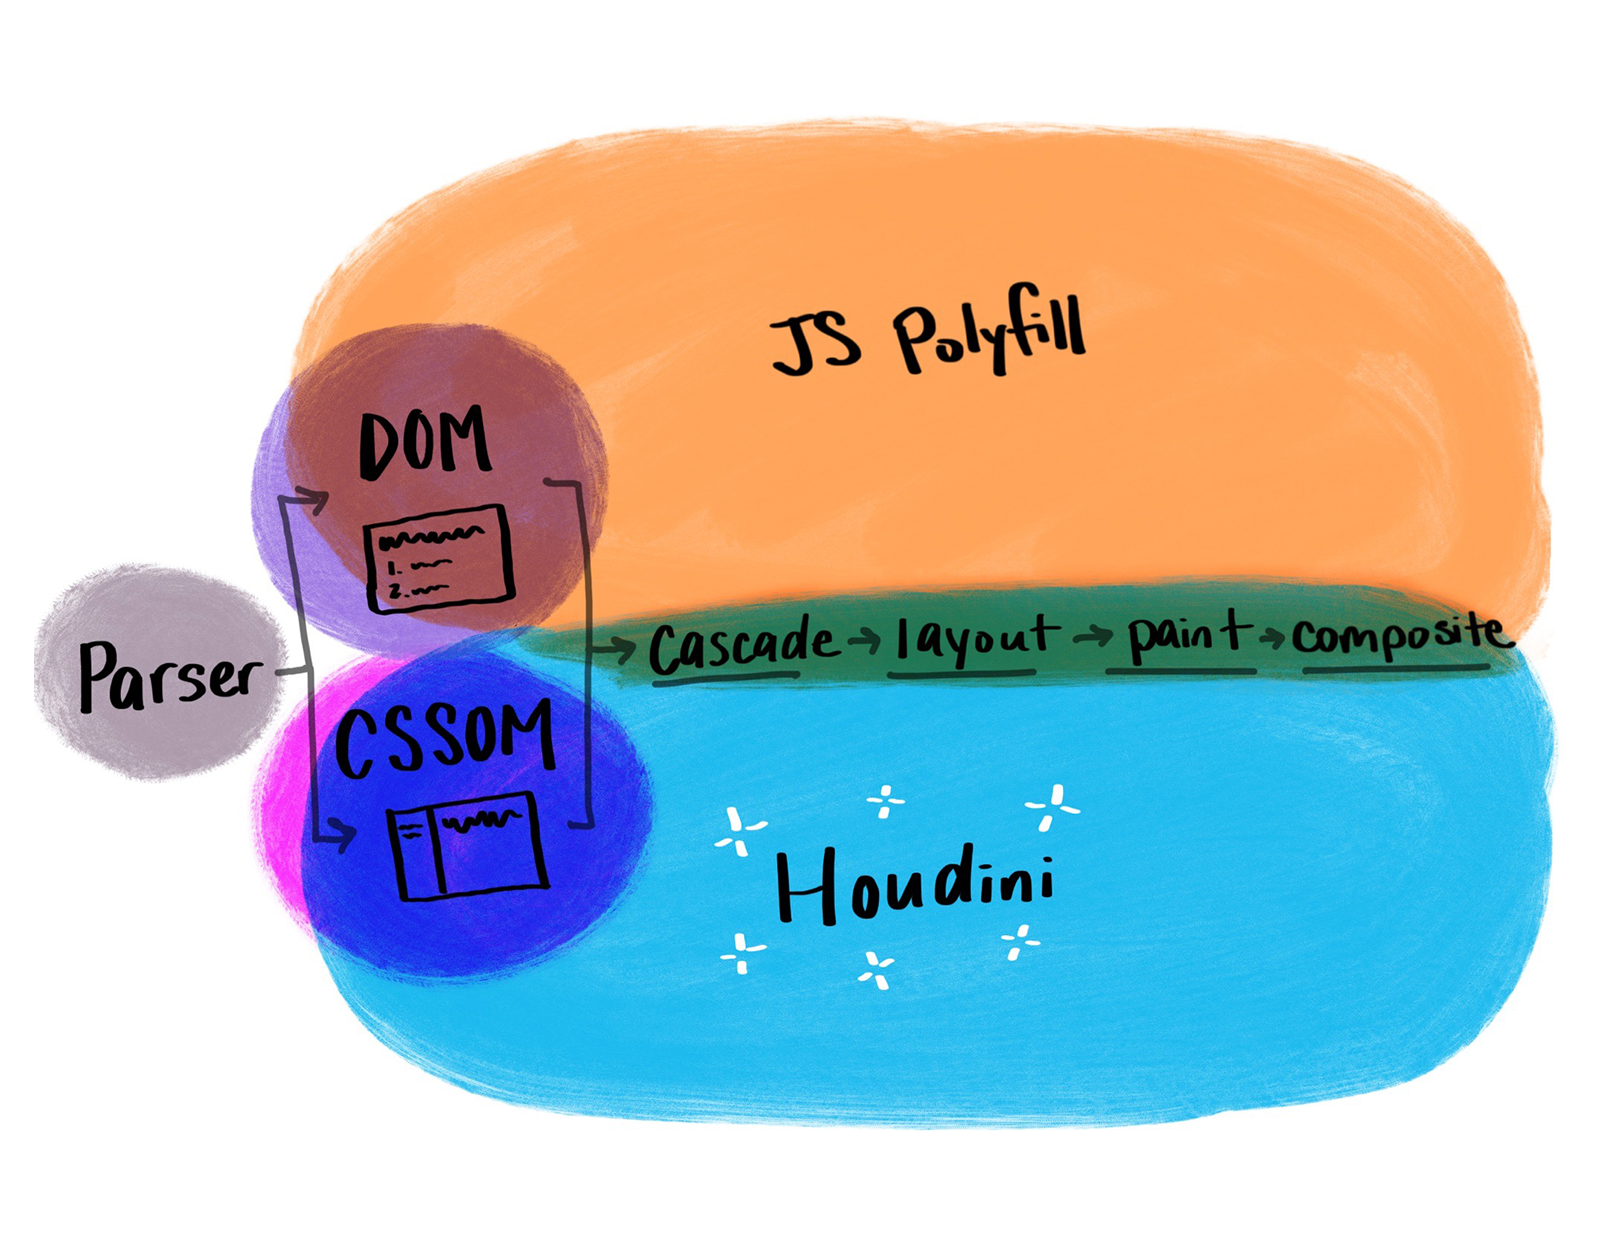 JS Polyfill
DOM
1.
2.
Parser
Cascade → layout → paint → composite
CSSOM
Houdini